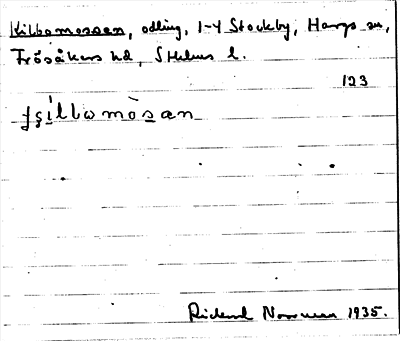 Killbomossen, odling, 1-4 Stockby, Hargs sn,
Frösåkers hd, Sthlms l.
123
Rickard Norrman 1935.